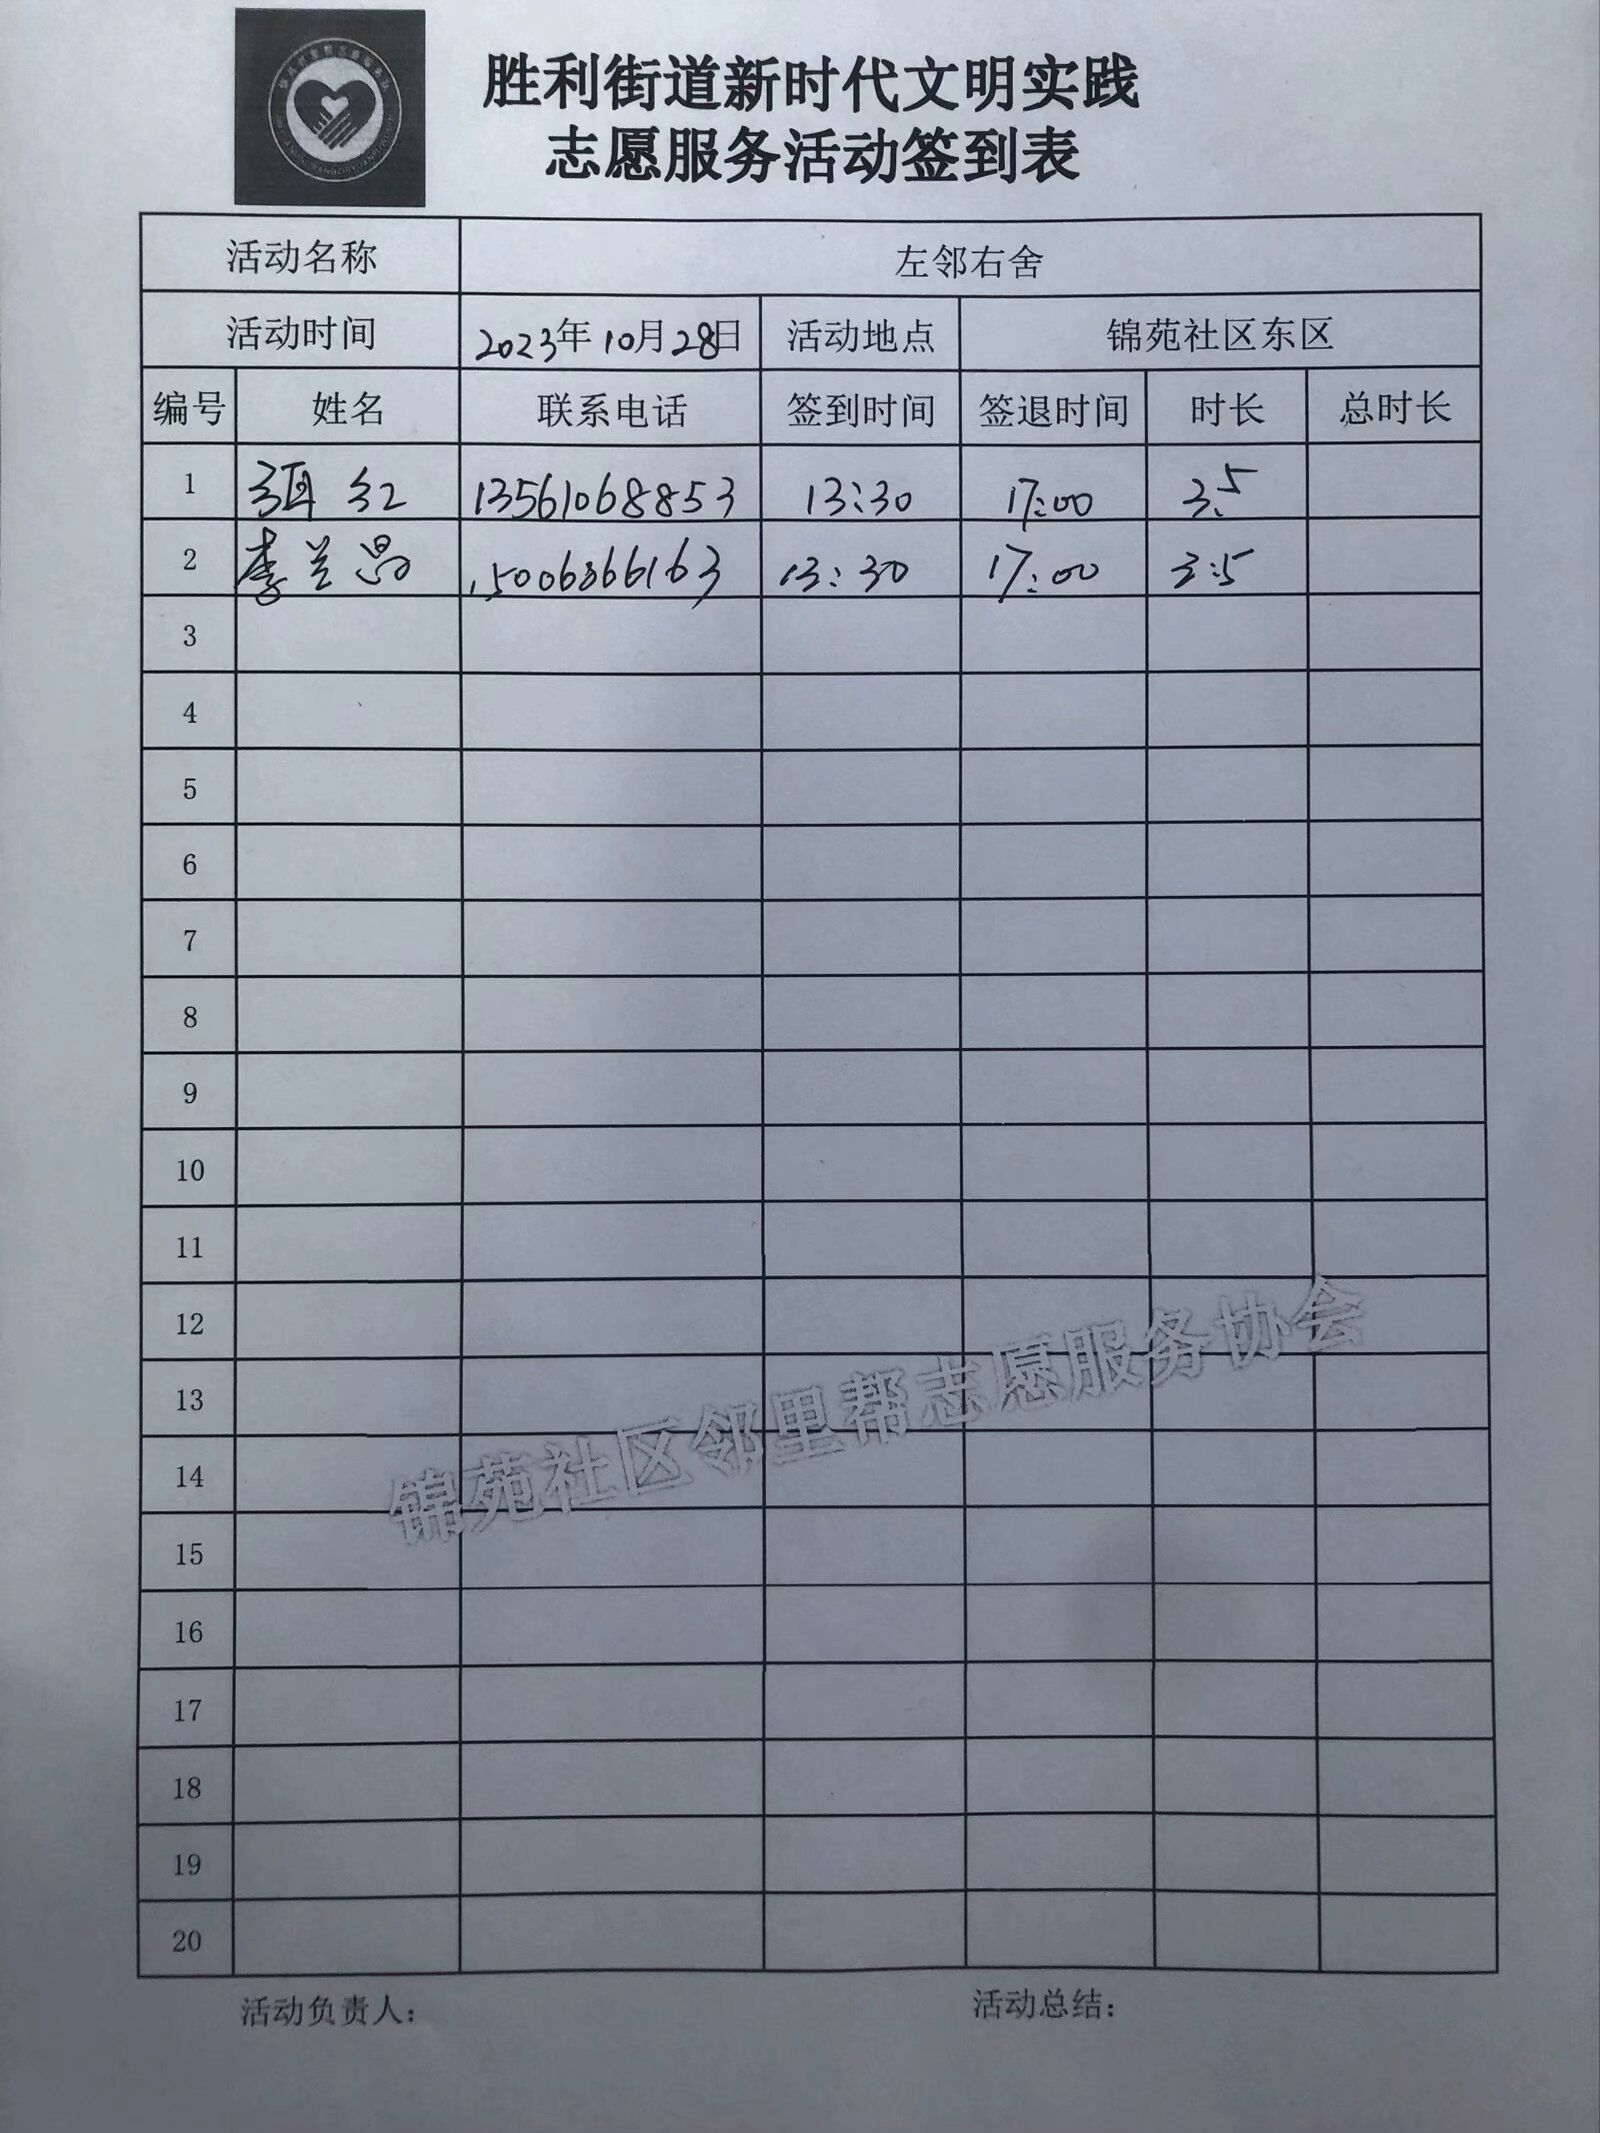 胜利街道新时代文明实践
志愿服务活动签到表
活动名称 左邻右舍
活动时间 2023年10月28日 活动地点 锦苑社区东区
编号 姓名 联系电话 签到时间 签退时间 时长 总时长
1 红 13561068853 13:30 17:00 3.5
2 李兰 15006366163 13:30 17:00 3.5
3
4
5
6
7
8
9
10
11
12
13
14
15
16
17
18
19
20
锦苑社区邻里帮志愿服务协会
活动负责人: 活动总结: